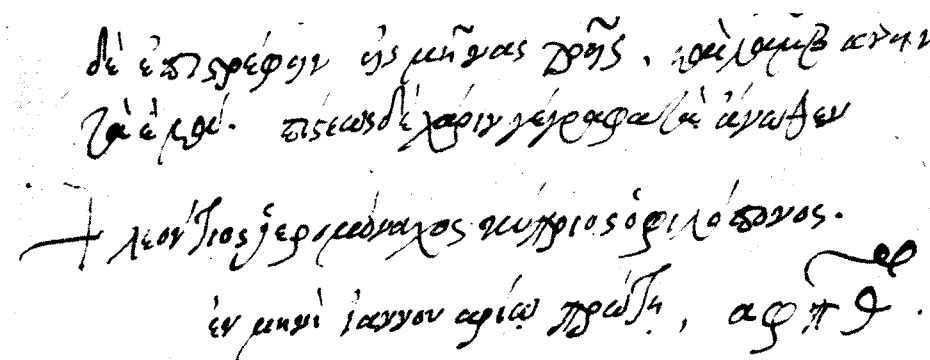 δὲ ἐπιστρέφην εἰς μῆνας τρῆς. παραλαμβάνην
τὰ ἐμά. πίστεως δὲ χάριν γέγραφα τὰ ἄνωθεν
+ λεόντιος ἱερομόναχος κύπριος ὁ φιλόπονος.
ἐν μηνὶ ἰαννουαρίῳ πρώτῃ, αφπθ.